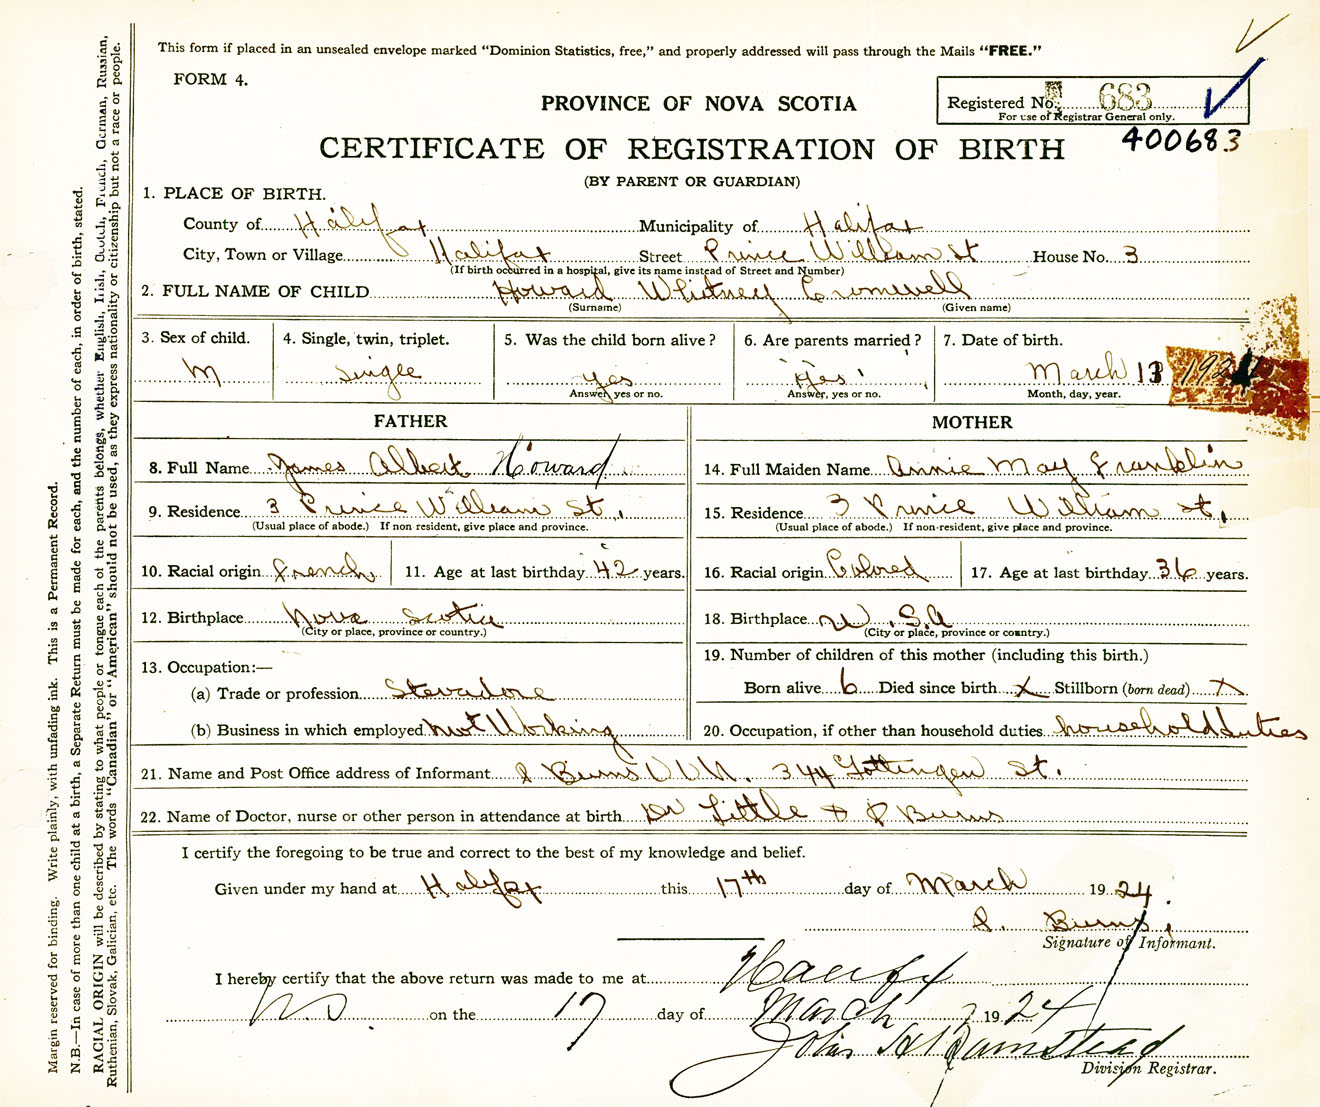 This form if placed in an unsealed envelope marked “Dominion Statistics, free,” and properly addressed will pass through the Mails “FREE.”
FORM 4.
Registered No. 683
For use of Registrar General only.
PROVINCE OF NOVA SCOTIA
400683
CERTIFICATE OF REGISTRATION OF BIRTH
(BY PARENT OR GUARDIAN)
1. PLACE OF BIRTH.
County of Halifax Municipality of Halifax
City, Town or Village Halifax Street Prince William St House No. 3
(If birth occurred in a hospital, give its name instead of Street and Number)
2. FULL NAME OF CHILD Howard Whitney Cromwell
(Surname) (Given name)
3. Sex of child. 4. Single, twin, triplet. 5. Was the child born alive? 6. Are parents married? 7. Date of birth.
M single yes yes March 13 1924
Answer, yes or no. Answer, yes or no. Month, day, year.
FATHER MOTHER
8. Full Name James Albert Howard 14. Full Maiden Name Annie May Franklin
9. Residence 3 Prince William St. 15. Residence 3 Prince William St.
(Usual place of abode.) If non resident, give place and province. (Usual place of abode.) If non-resident, give place and province.
10. Racial origin French 11. Age at last birthday 42 years. 16. Racial origin Colored 17. Age at last birthday 36 years.
12. Birthplace Nova Scotia 18. Birthplace U.S.A
(City or place, province or country.) (City or place, province or country.)
13. Occupation:— 19. Number of children of this mother (including this birth.)
(a) Trade or profession Stevadore Born alive 6 Died since birth X Stillborn (born dead) X
(b) Business in which employed not Working 20. Occupation, if other than household duties household duties
21. Name and Post Office address of Informant Burns 344 Gottingen St.
22. Name of Doctor, nurse or other person in attendance at birth Dr Little & P Burns
I certify the foregoing to be true and correct to the best of my knowledge and belief.
Given under my hand at Halifax this 17th day of March 1924.
Burns
Signature of Informant.
I hereby certify that the above return was made to me at Halifax
N.S. on the 17 day of March 1924
John
Division Registrar.
Margin reserved for binding. Write plainly, with unfading ink. This is a Permanent Record.
N.B.—In case of more than one child at a birth, a Separate Return must be made for each, and the number of each, in order of birth, stated.
RACIAL ORIGIN will be described by stating to what people or tongue each of the parents belongs, whether English, Irish, Scotch, French, German, Russian,
Ruthenian, Slovak, Galician, etc. The words “Canadian” or “American” should not be used, as they express nationality or citizenship but not a race or people.